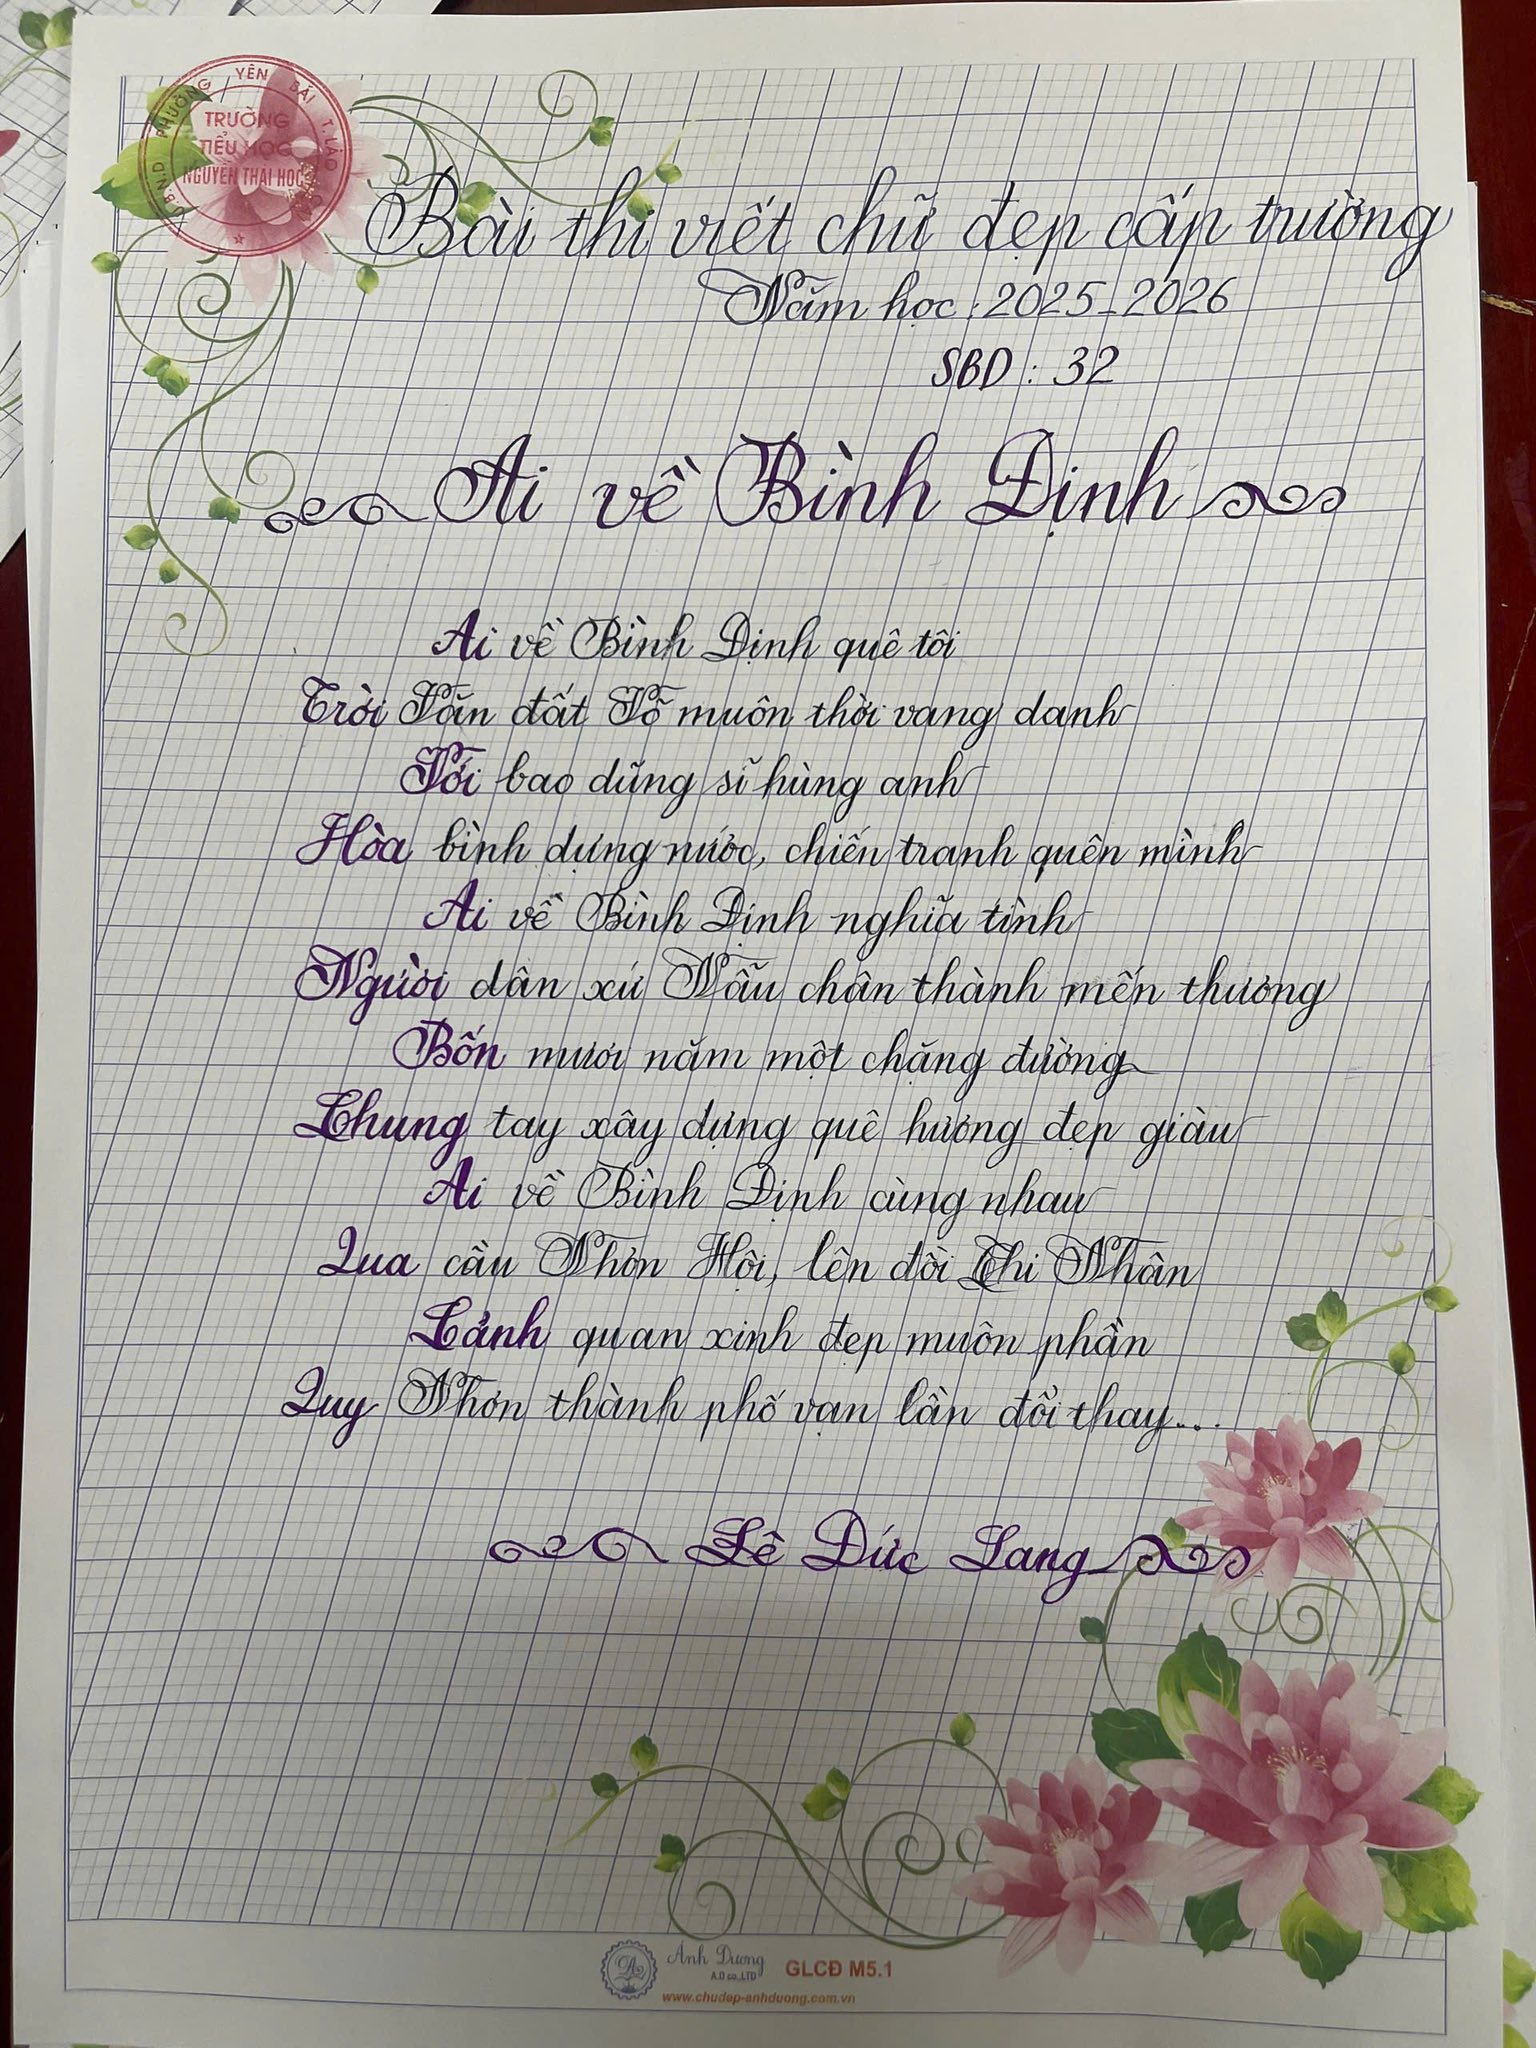 U.B.N.D PHƯỜNG YÊN BÁI T.LÀO CAI
TRƯỜNG
TIỂU HỌC
NGUYỄN THÁI HỌC
Bài thi viết chữ đẹp cấp trường
Năm học : 2025-2026
SBD : 32
Ai về Bình Định
Ai về Bình Định quê tôi
Trời Văn đất Võ muôn thời vang danh
Với bao dũng sĩ hùng anh
Hòa bình dựng nước, chiến tranh quên mình
Ai về Bình Định nghĩa tình
Người dân xứ Nẫu chân thành mến thương
Bốn mươi năm một chặng đường
Chung tay xây dựng quê hương đẹp giàu
Ai về Bình Định cùng nhau
Qua cầu Nhơn Hội, lên đồi Thi Nhân
Cảnh quan xinh đẹp muôn phần
Quy Nhơn thành phố vạn lần đổi thay...
Lê Đức Lang
Ánh Dương
A.D co.,LTD
GLCĐ M5.1
www.chudep-anhduong.com.vn